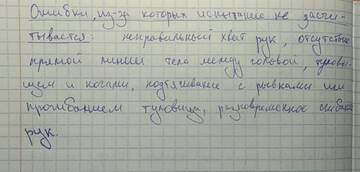 Ошибки, из-за которых испытание не засчи-
тывается: неправильный хват рук, отсутствие
прямой линии тела между головой, тулови-
щем и ногами, подтягивание с рывками или
прогибанием туловища, разновременное сгибание
рук.